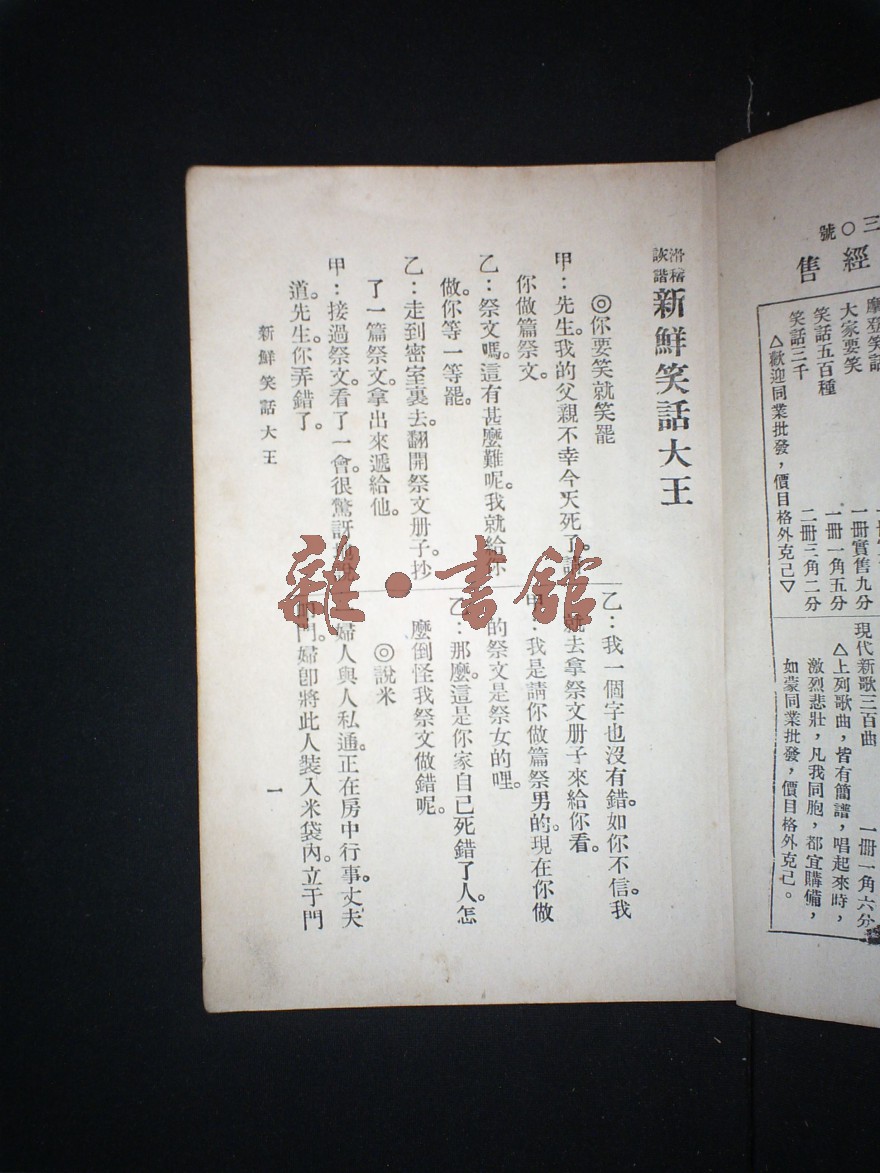 三〇號
經售
摩登笑話
大家要笑
一冊實售九分
笑話五百種
一冊一角五分
笑話三千
二冊三角二分
△歡迎同業批發，價目格外克己▽
現代新歌三百曲
一冊一角六分
△上列歌曲，皆有簡譜，唱起來時，
激烈悲壯，凡我同胞，都宜購備，
如蒙同業批發，價目格外克己。
滑稽
詼諧
新鮮笑話大王
◎你要笑就笑罷
甲：先生。我的父親不幸今天死了。請
你做篇祭文。
乙：祭文嗎。這有甚麼難呢。我就給你
做。你等一等罷。
乙：走到密室裏去。翻開祭文册子。抄
了一篇祭文。拿出來遞給他。
甲：接過祭文。看了一會。很驚訝
道。先生。你弄錯了。
乙：我一個字也沒有錯。如你不信。我
就去拿祭文册子來給你看。
甲：我是請你做篇祭男的。現在你做
的祭文是祭女的哩。
乙：那麼。這是你家自己死錯了人。怎
麼倒怪我祭文做錯呢。
◎說米
一婦人與人私通。正在房中行事。丈夫
叩門。婦卽將此人裝入米袋內。立于門
新鮮笑話大王
一
雜·書館